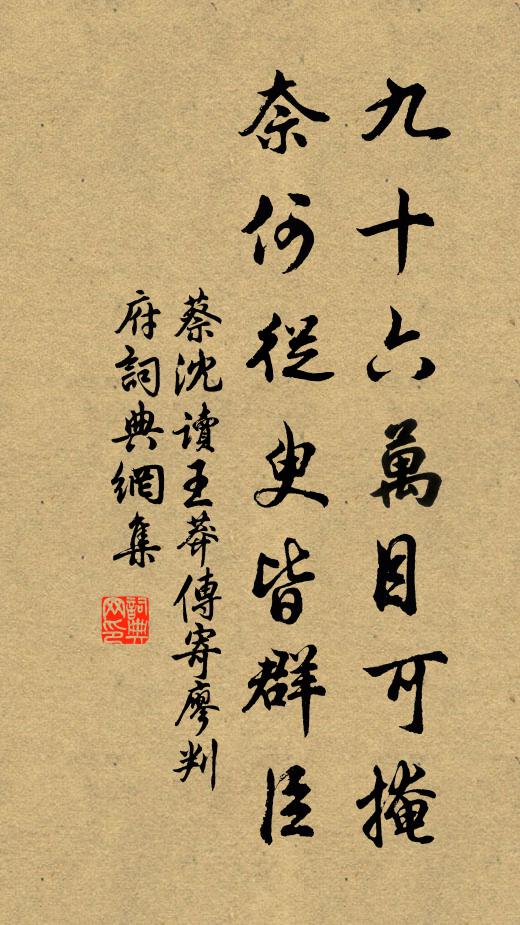 九十六萬目可掩
奈何從叟皆群臣
蔡沈讀王莽傳寄廖判
府詞典網集
詞典網印